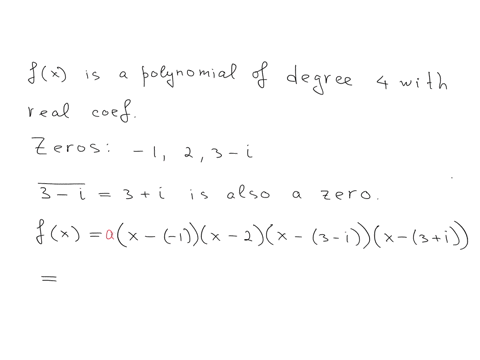 f(x) is a polynomial of degree 4 with
real coef.
Zeros: -1, 2, 3-i
\overline{3-i} = 3+i is also a zero.
f(x) = a(x-(-1))(x-2)(x-(3-i))(x-(3+i))
=